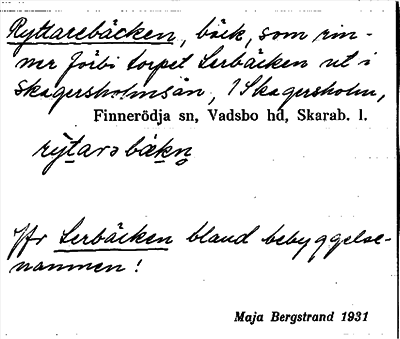 Ryttarebäcken, bäck, som rin-
ner förbi torpet Lerbäcken ut i
Skagersholmsån, / Skagersholm,
Finnerödja sn, Vadsbo hd, Skarab. l.
rỳtarəbækn̥
Jfr Lerbäcken bland bebyggelse-
namnen!
Maja Bergstrand 1931